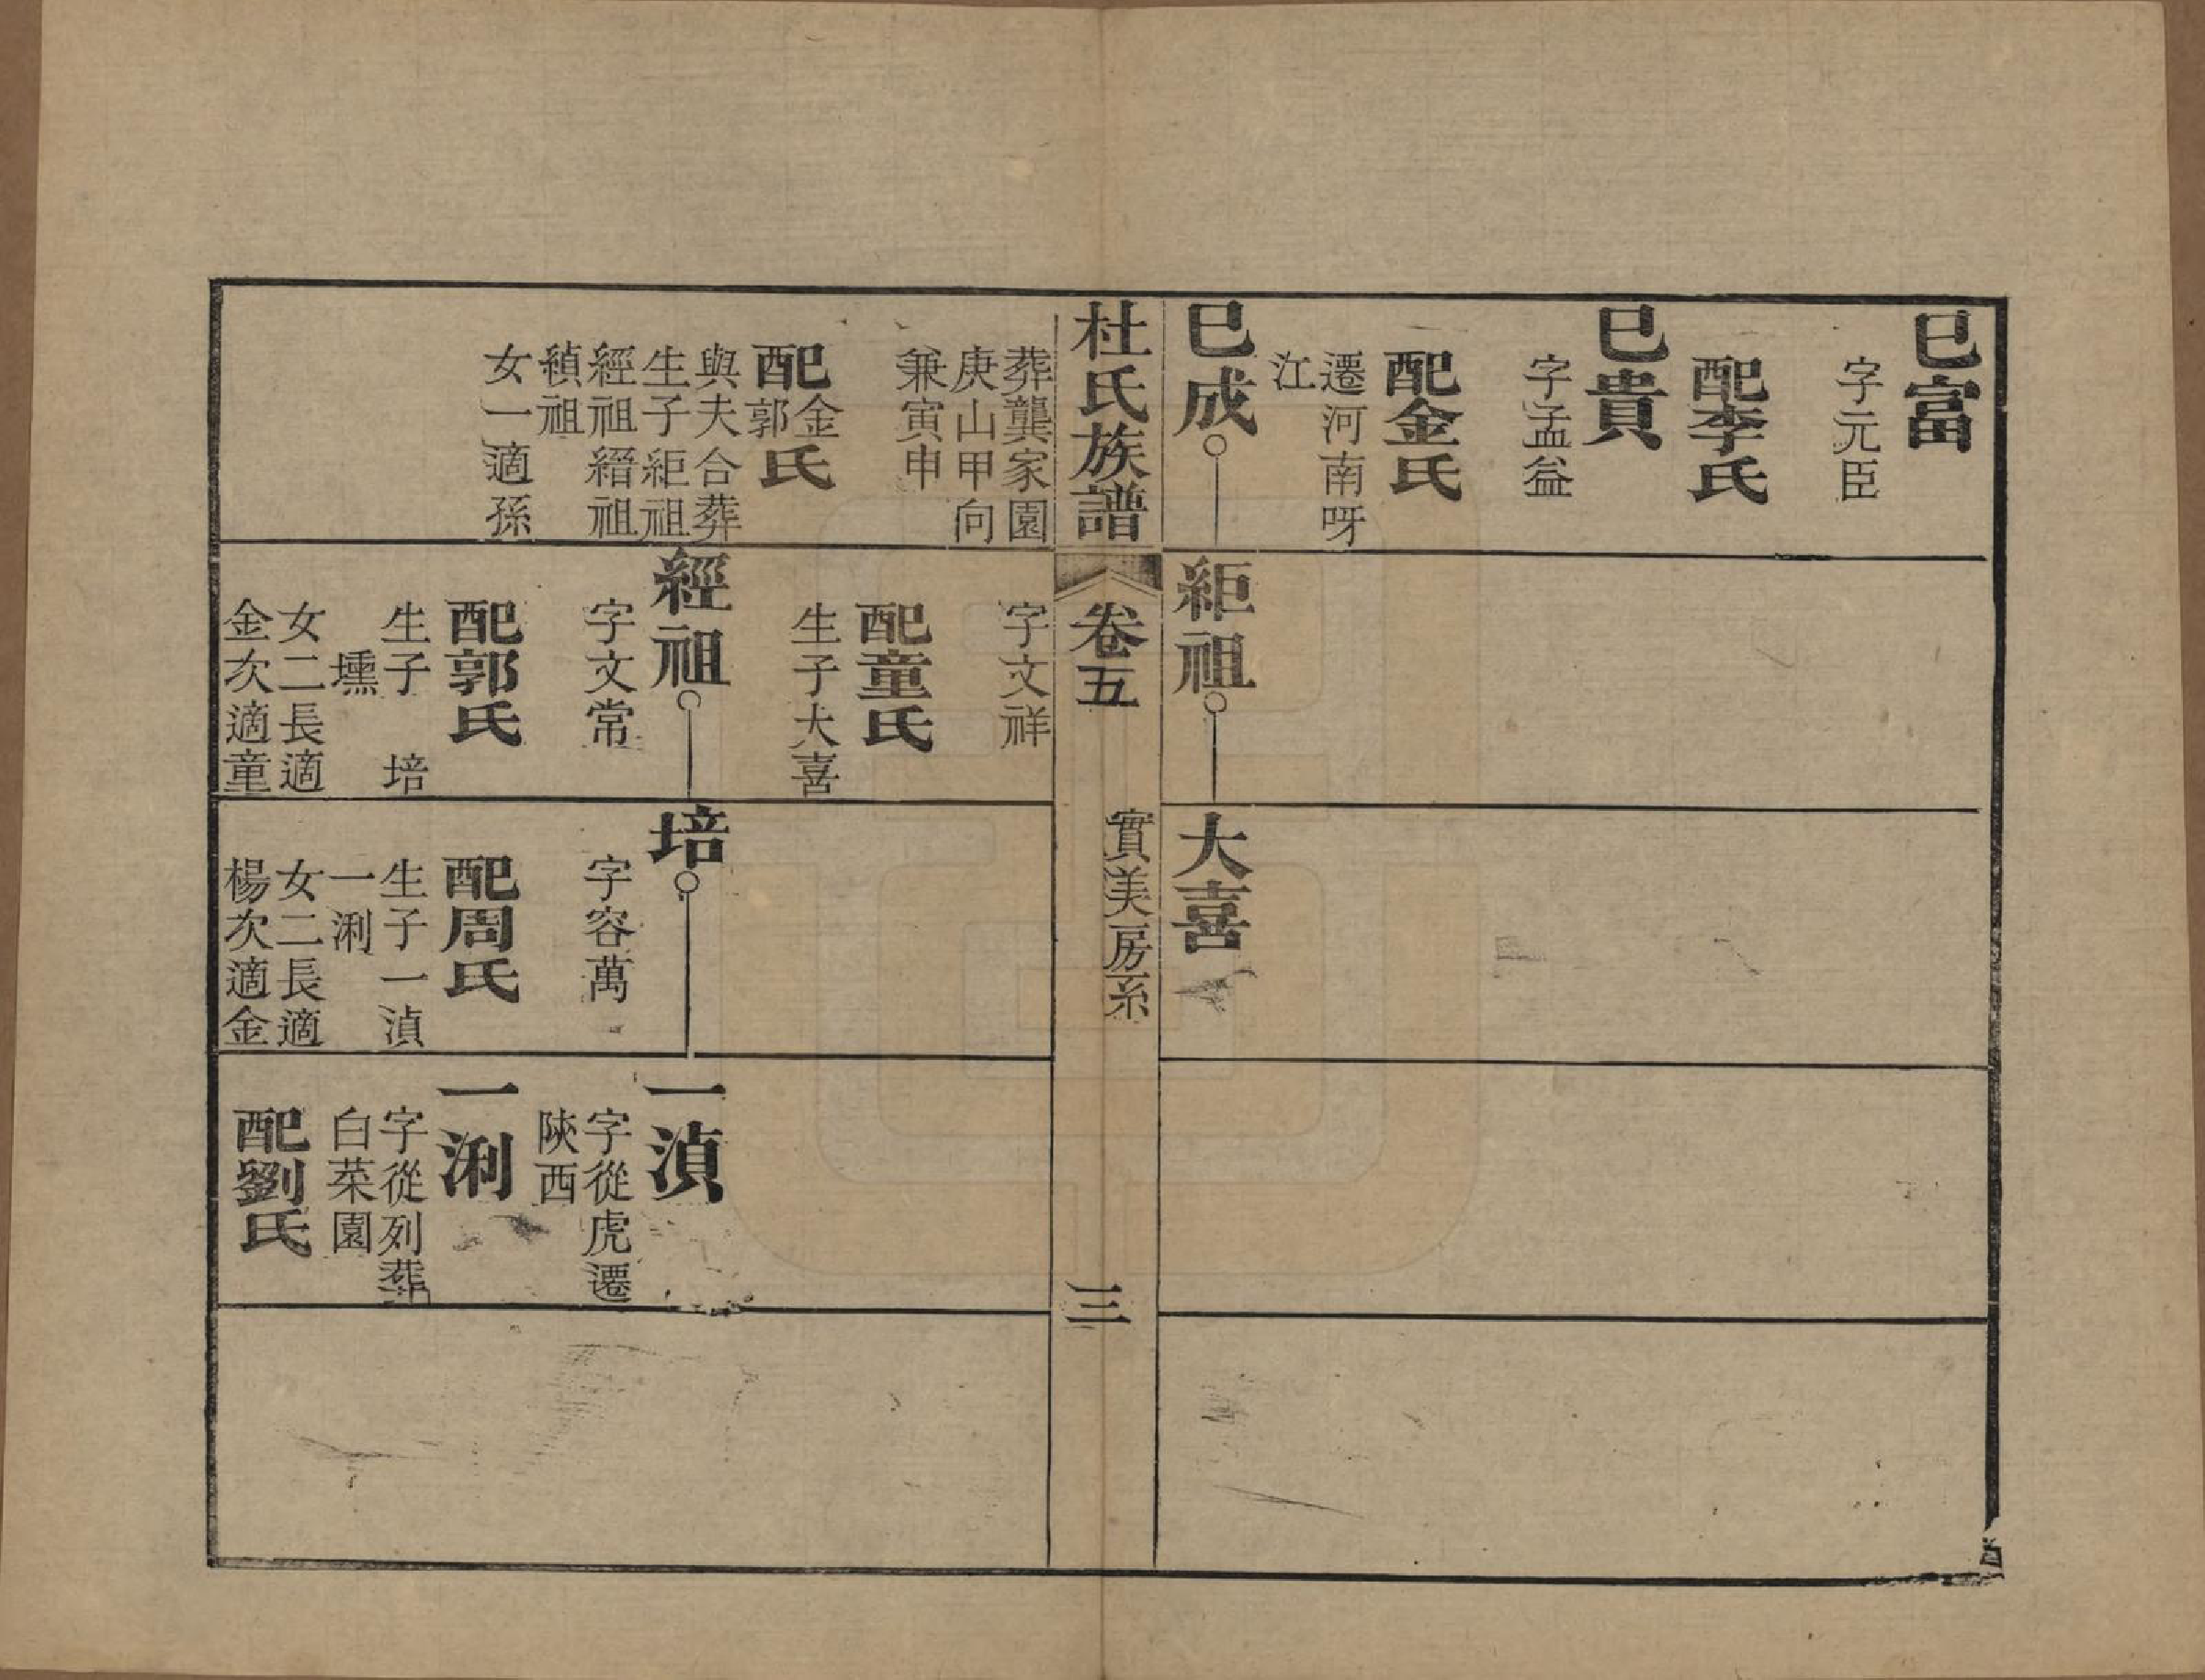 巳富
字元臣
配李氏
巳貴
字孟益
配金氏
遷河南呀
江
巳成
䋎祖
大喜
杜氏族譜
卷五
實美房系
三
葬龔家園
庚山甲向
兼寅申
配金郭氏
與夫合葬
生子䋎祖
經祖縉祖
縝祖
女一適孫
字文祥
配童氏
生子大喜
經祖
字文常
配郭氏
生子　培
壎
女二長適
金次適童
培
字容萬
配周氏
生子一湞
一浰
女二長適
楊次適金
一湞
字從虎遷
陝西
一浰
字從列葬
白菜園
配劉氏